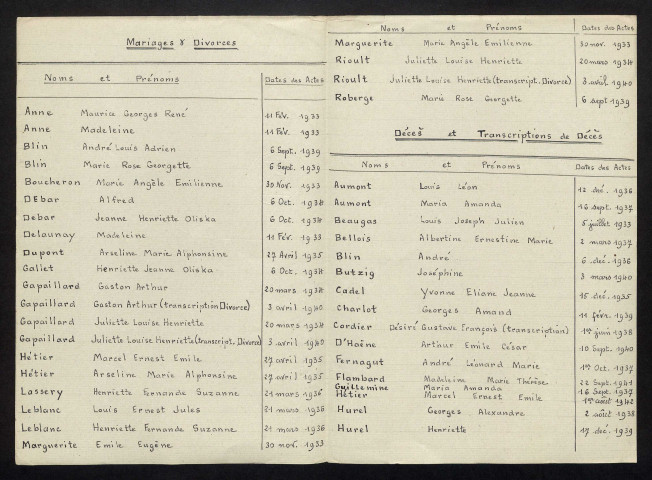 Mariages & Divorces
Noms et Prénoms Dates des Actes
Anne Maurice Georges René 11 Fév. 1933
Anne Madeleine 11 Fév. 1933
Blin André Louis Adrien 6 Sept. 1939
Blin Marie Rose Georgette 6 Sept. 1939
Boucheron Marie Angèle Emilienne 30 Nov. 1933
Debar Alfred 6 Oct. 1934
Debar Jeanne Henriette Oliska 6 Oct. 1934
Delaunay Madeleine 11 Fév. 1933
Dupont Arseline Marie Alphonsine 27 Avril 1935
Galiet Henriette Jeanne Oliska 6 Oct. 1934
Gapaillard Gaston Arthur 20 mars 1934
Gapaillard Gaston Arthur (transcription Divorce) 3 avril 1940
Gapaillard Juliette Louise Henriette 20 mars 1934
Gapaillard Juliette Louise Henriette (transcript. Divorce) 3 avril 1940
Hétier Marcel Ernest Emile 27 avril 1935
Hétier Arseline Marie Alphonsine 27 avril 1935
Lassery Henriette Fernande Suzanne 21 mars 1936
Leblanc Louis Ernest Jules 21 mars 1936
Leblanc Henriette Fernande Suzanne 21 mars 1936
Marguerite Emile Eugène 30 nov. 1933
Noms et Prénoms Dates des Actes
Marguerite Marie Angèle Emilienne 30 nov. 1933
Rioult Juliette Louise Henriette 20 mars 1934
Rioult Juliette Louise Henriette (transcript. Divorce) 3 avril 1940
Roberge Marie Rose Georgette 6 sept 1939
Décès et Transcriptions de Décès
Noms et Prénoms Dates des Actes
Aumont Louis Léon 12 déc. 1936
Aumont Maria Amanda 16 sept. 1937
Beaugas Louis Joseph Julien 5 juillet 1933
Bellois Albertine Ernestine Marie 2 mars 1937
Blin André 6 déc. 1936
Butzig Joséphine 3 mars 1940
Cadel Yvonne Eliane Jeanne 15 déc. 1935
Charlot Georges Amand 11 févr. 1939
Cordier Désiré Gustave François (transcription) 1er juin 1938
D'Haëne Arthur Emile César 10 Sept. 1940
Fernagut André Léonard Marie 1er Oct. 1937
Flambard Madeleine Marie Thérèse 22 Sept. 1941
Guillemine Maria Amanda 16 Sept. 1937
Hétier Marcel Ernest Emile 1er août 1942
Hurel Georges Alexandre 2 août 1938
Hurel Henriette 17 déc. 1939